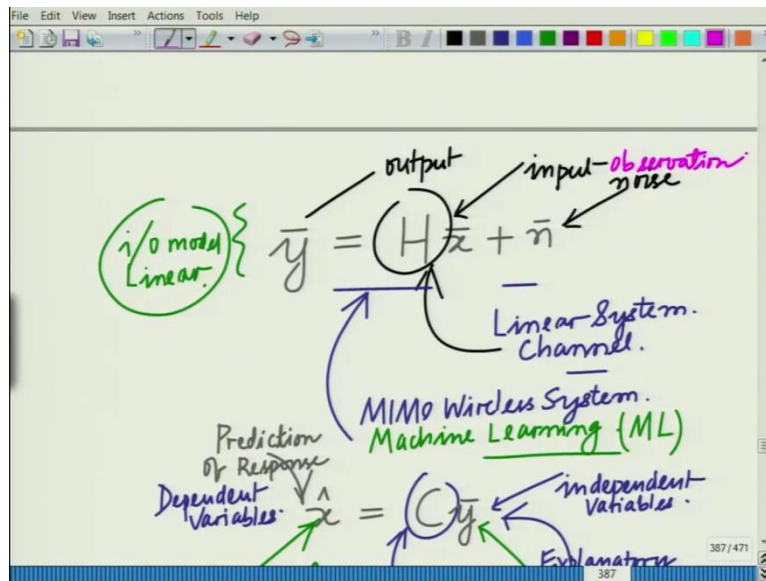 File Edit View Insert Actions Tools Help
output
input- observation
noise
i/o model
Linear.
ȳ = H x̄ + n̄
Linear System.
Channel.
MIMO Wireless System.
Machine Learning (ML)
Prediction
of Response
Dependent
Variables.
x̂ = C ȳ
independent
Variables.
Explanatory
387/471
387